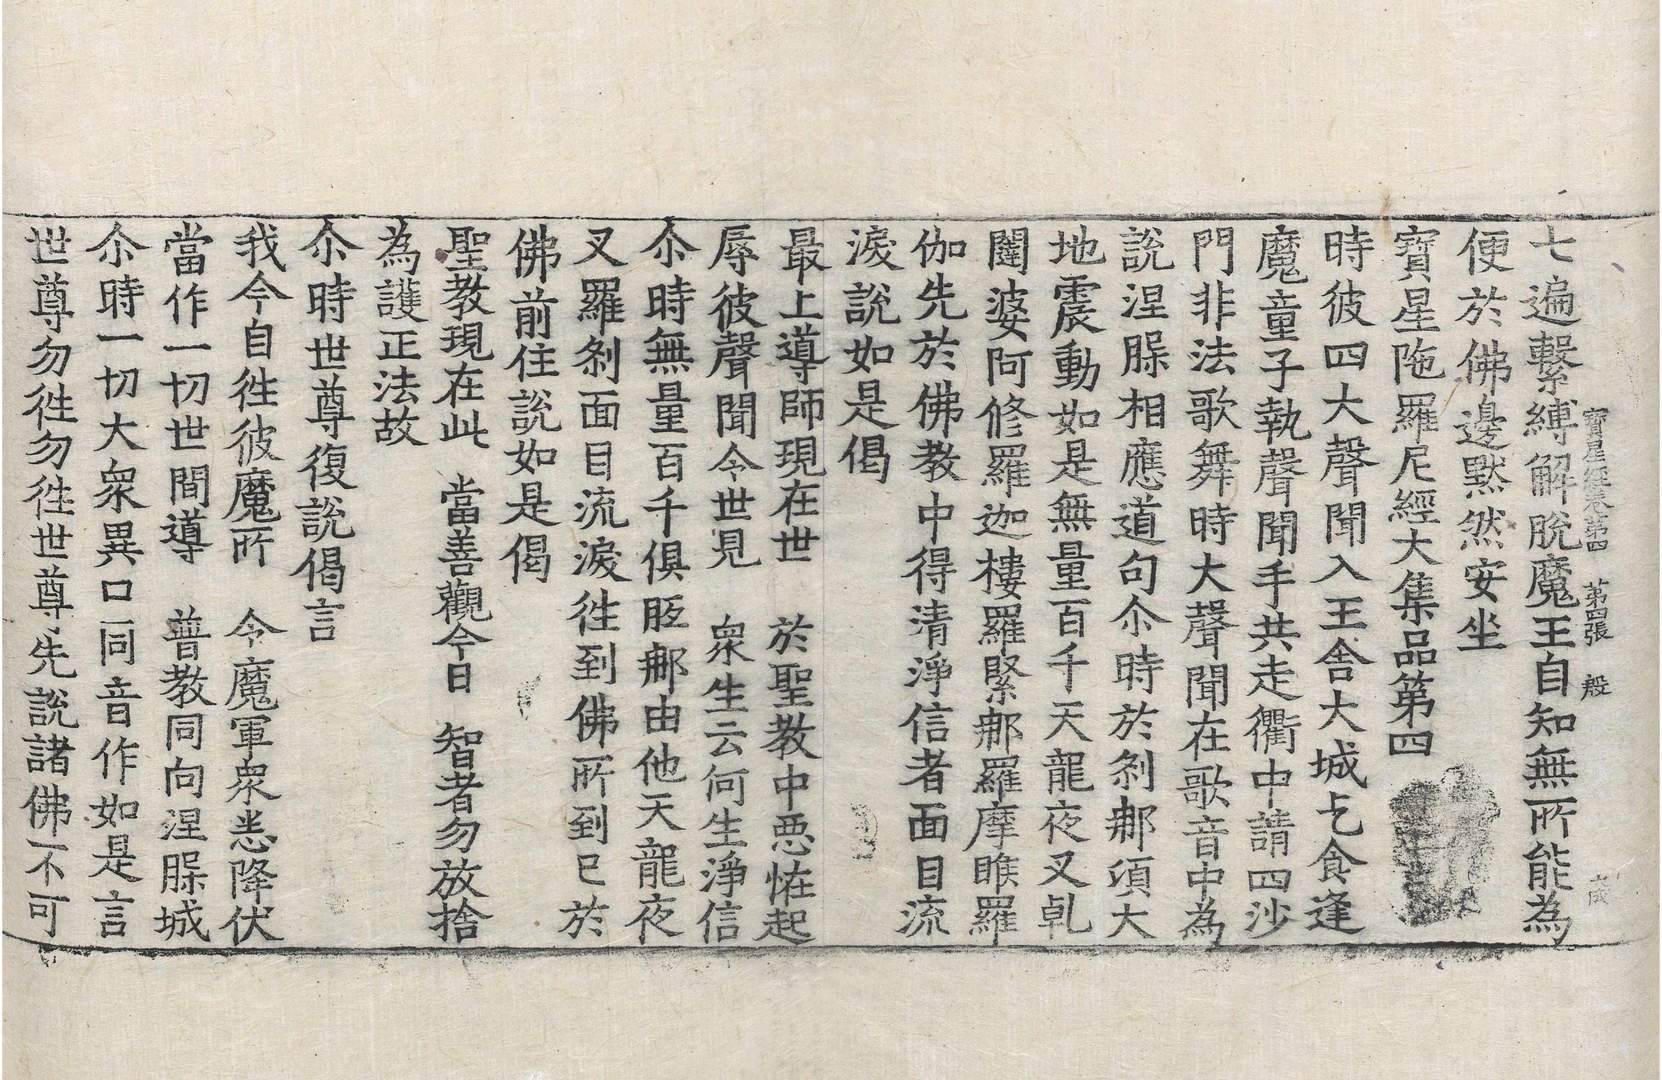 寶星經卷第四　第四張　殷
七遍繫縛解脫魔王自知無所能為
便於佛邊默然安坐
寶星陁羅尼經大集品第四
時彼四大聲聞入王舍大城乞食逢
魔童子執聲聞手共走衢中請四沙
門非法歌舞時大聲聞在歌音中為
說涅槃相應道句尒時於剎那須大
地震動如是無量百千天龍夜叉乹
闥婆阿修羅迦樓羅緊那羅摩睺羅
伽先於佛教中得清淨信者面目流
淚說如是偈
最上導師現在世　於聖教中惡恠起
辱彼聲聞今世見　衆生云何生淨信
尒時無量百千俱胝那由他天龍夜
叉羅剎面目流淚徃到佛所到已於
佛前住說如是偈
聖教現在此　當善觀今日　智者勿放捨
為護正法故
尒時世尊復說偈言
我今自徃彼魔所　令魔軍衆悉降伏
當作一切世間導　普教同向涅槃城
尒時一切大衆異口同音作如是言
世尊勿徃勿徃世尊先說諸佛不可